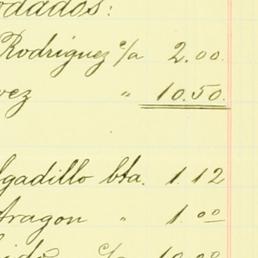 odados:
Rodriguez c/a 2.00
vez " 10.50
lgadillo bta. 1.12
Aragon " 1 00
c/a 10.00